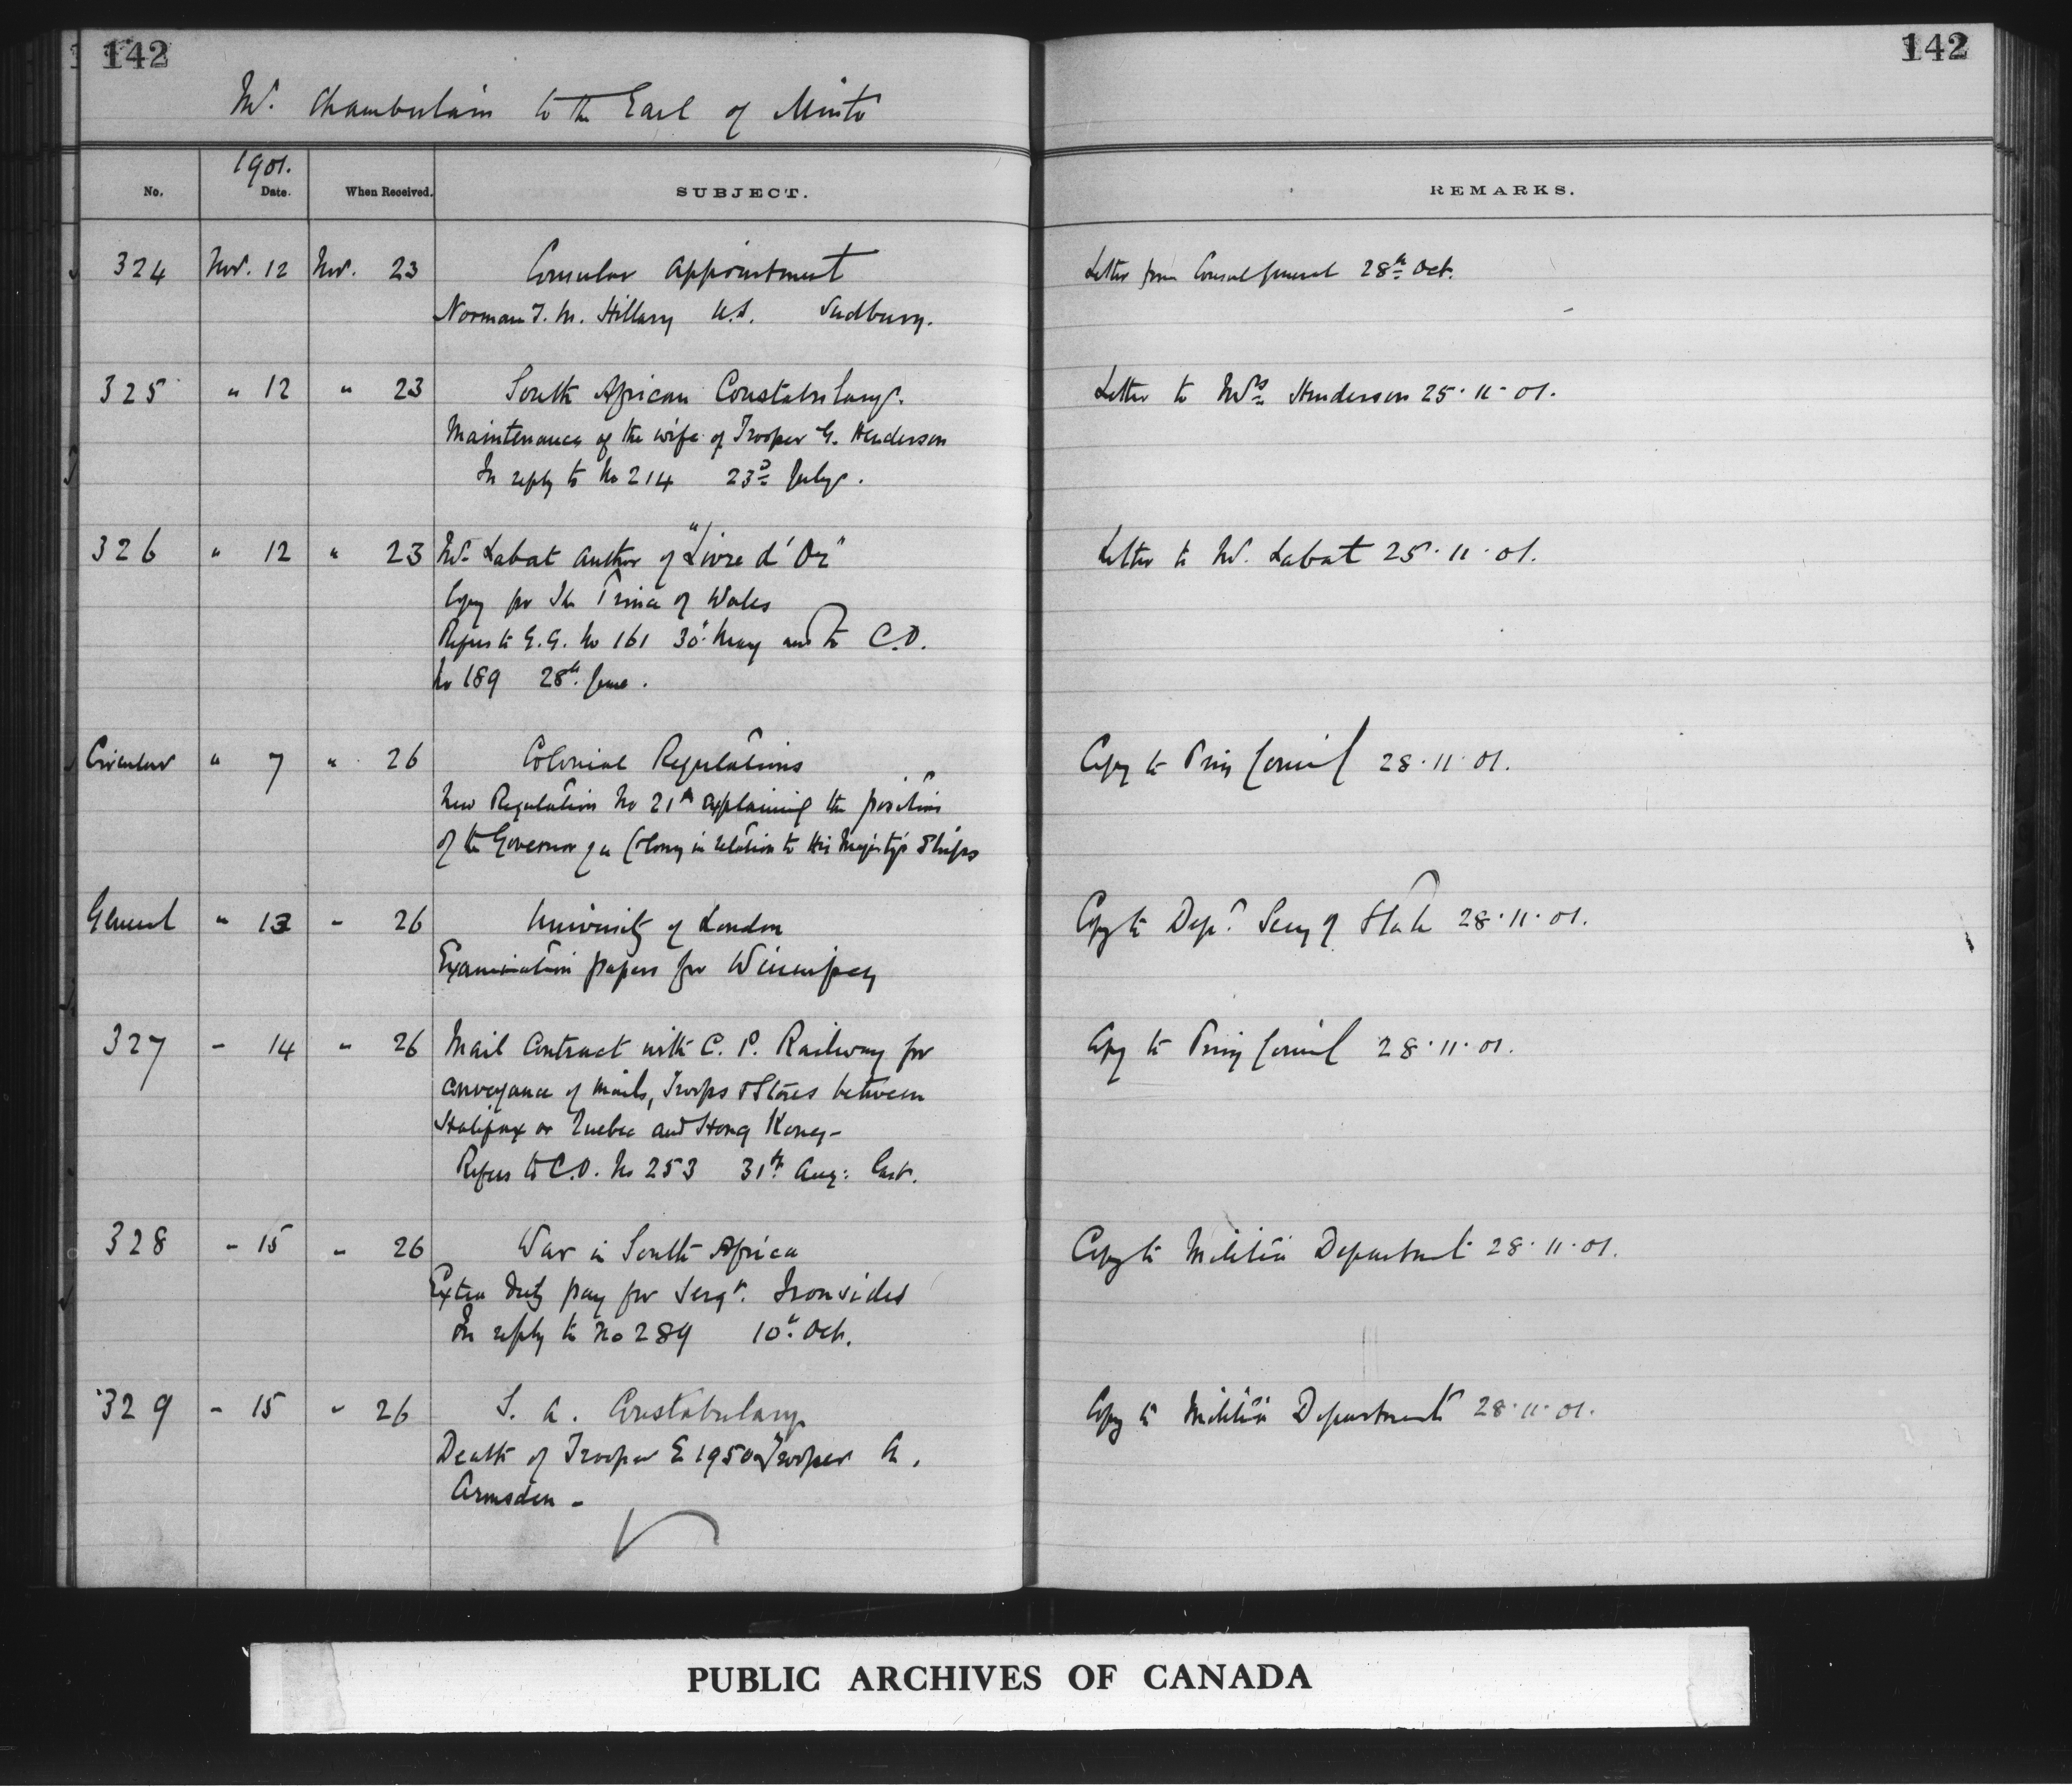 142
142
Mr. Chamberlain to the Earl of Minto
1901.
No. Date. When Received. SUBJECT. REMARKS.
324 Nov. 12 Nov. 23 Consular Appointment Letter from Consul General 28th Oct.
Norman T. M. Hillary U.S. Sudbury.
325 " 12 " 23 South African Constabulary. Letter to Mrs Henderson 25.11.01.
Maintenance of the wife of Trooper G. Henderson
In reply to No 214 23rd July.
326 " 12 " 23 Mr. Labat Author of "Livre d'Or" Letter to Mr. Labat 25.11.01.
Copy for The Prince of Wales
Refers to G.G. No 161 30th May and to C.O.
No 189 28th June.
Circular " 7 " 26 Colonial Regulations Copy to Privy Council 28.11.01.
New Regulation No 21A explaining the position
of the Governor of a Colony in relation to His Majesty's Ships
General " 13 " 26 University of London Copy to Dept. Secy of State 28.11.01.
Examination papers for Winnipeg
327 " 14 " 26 Mail Contract with C. P. Railway for Copy to Privy Council 28.11.01.
conveyance of mails, Troops & Stores between
Halifax or Quebec and Hong Kong-
Refers to C.O. No 253 31st Aug: last.
328 " 15 " 26 War in South Africa Copy to Militia Department 28.11.01.
Extra Duty pay for Sergt. Ironsides
In reply to No 289 10th Oct.
329 " 15 " 26 S. A. Constabulary Copy to Militia Department 28.11.01.
Death of Trooper E 1950 Trooper A.
Armsden -
PUBLIC ARCHIVES OF CANADA